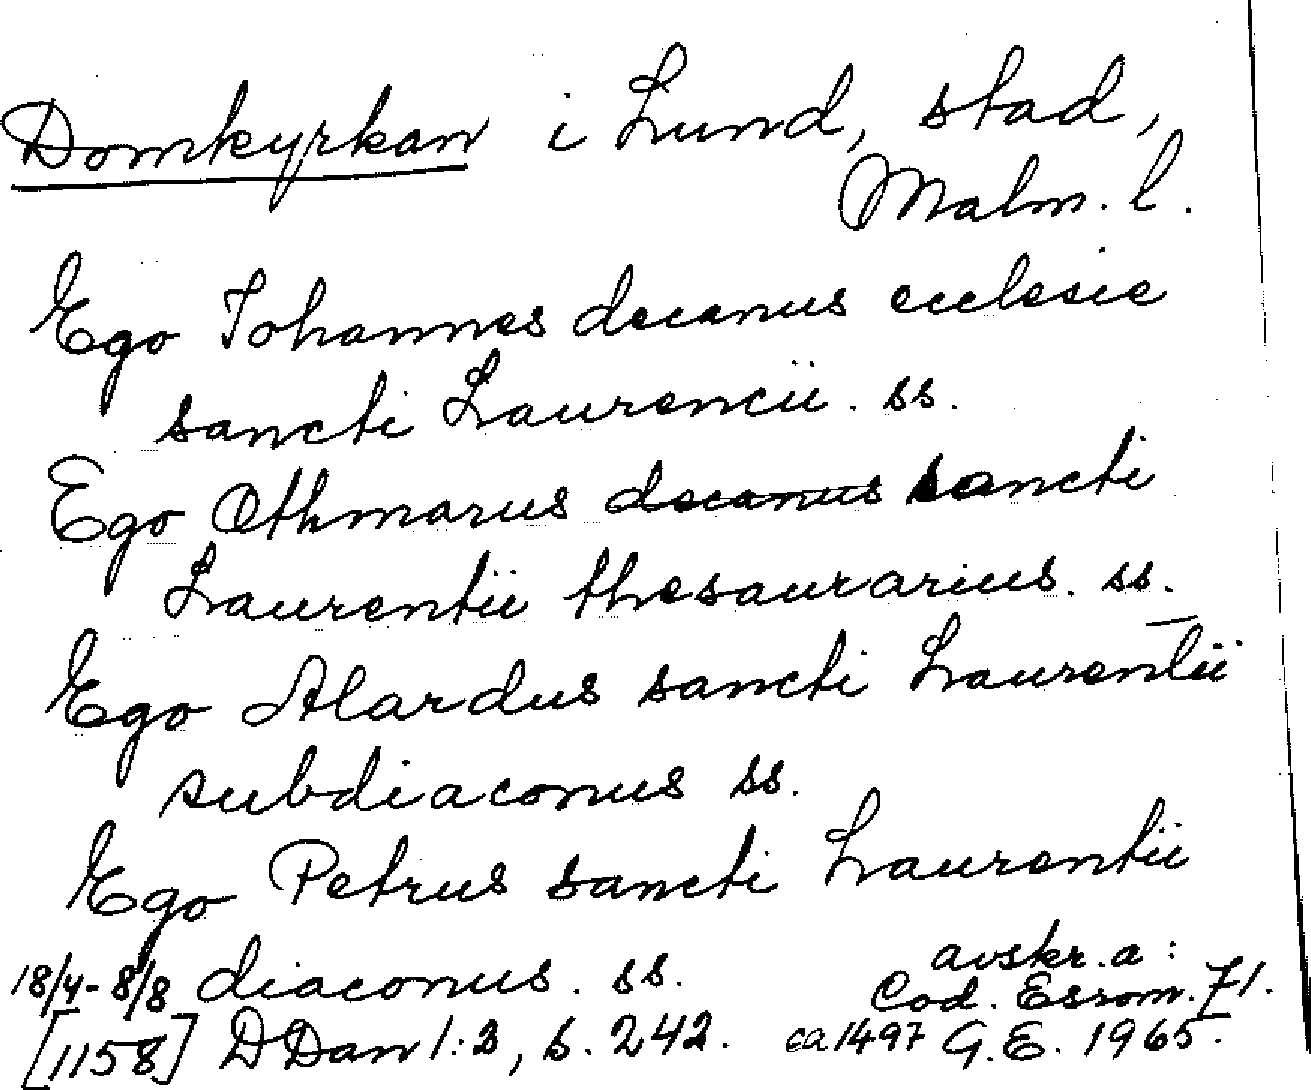 Domkyrkan i Lund, stad,
Malm. l.
Ego Iohannes decanus ecclesie
sancti Laurencii. ss.
Ego Othmarus decanus sancti
Laurentii thesaurarius. ss.
Ego Alardus sancti Laurentii
subdiaconus ss.
Ego Petrus sancti Laurentii
diaconus. ss.
avskr. a:
18/4-8/8 Cod. Esrom. 71.
[1158] DDan 1:2, s. 242. ca 1497 G.E. 1965.